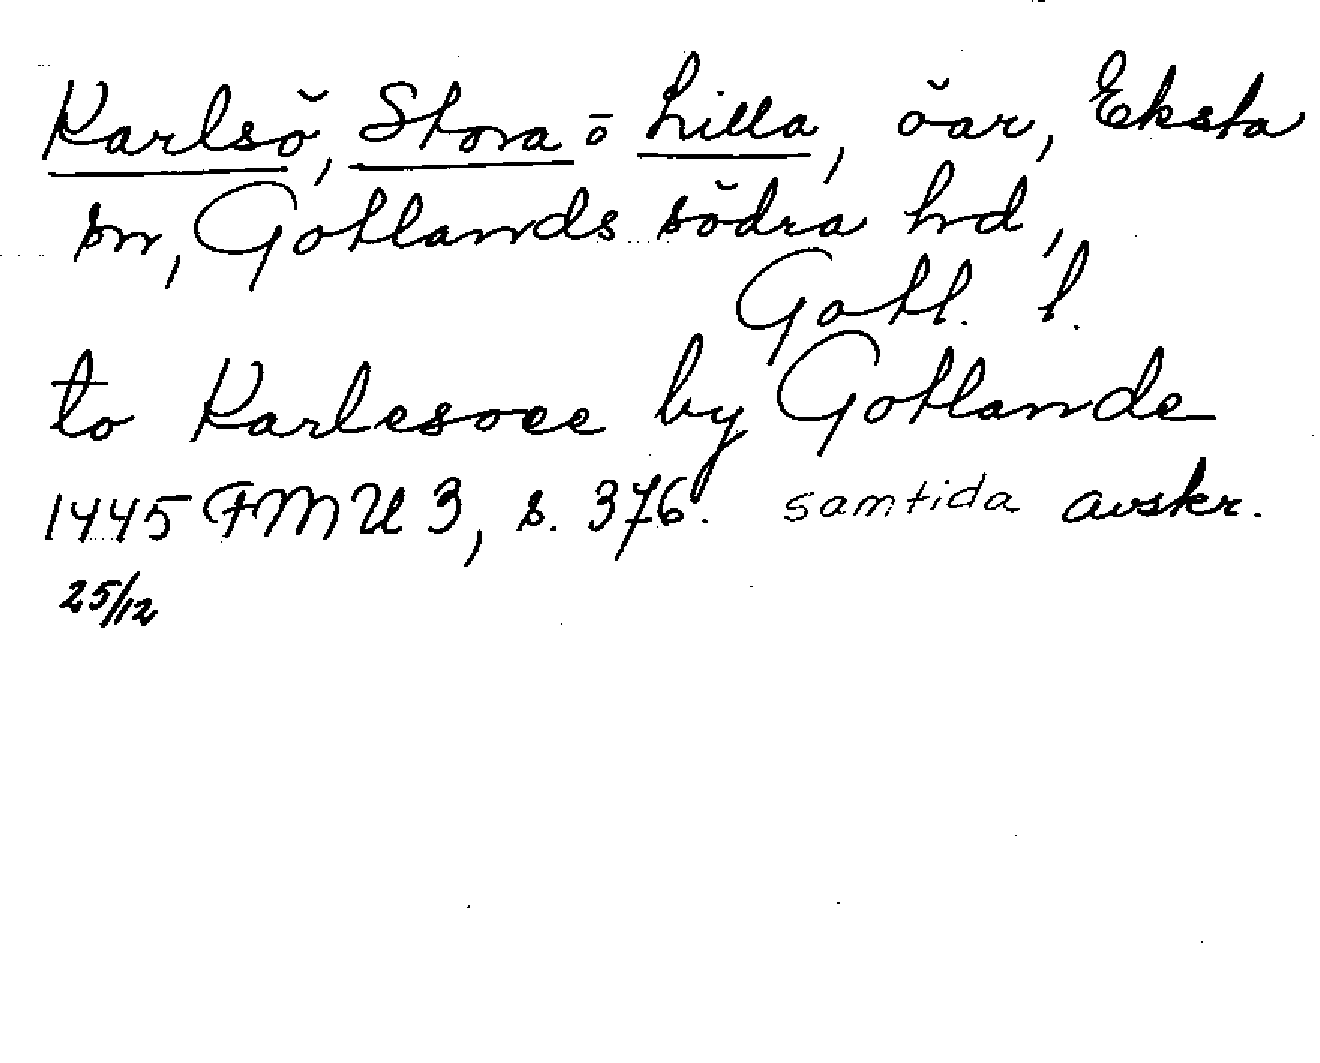 Karlsö, Stora o Lilla, öar, Eksta
sn, Gotlands södra hd,
Gotl. l.
to Karlesoee by Gotlande
1445 FMU 3, s. 376. samtida avskr.
25/12